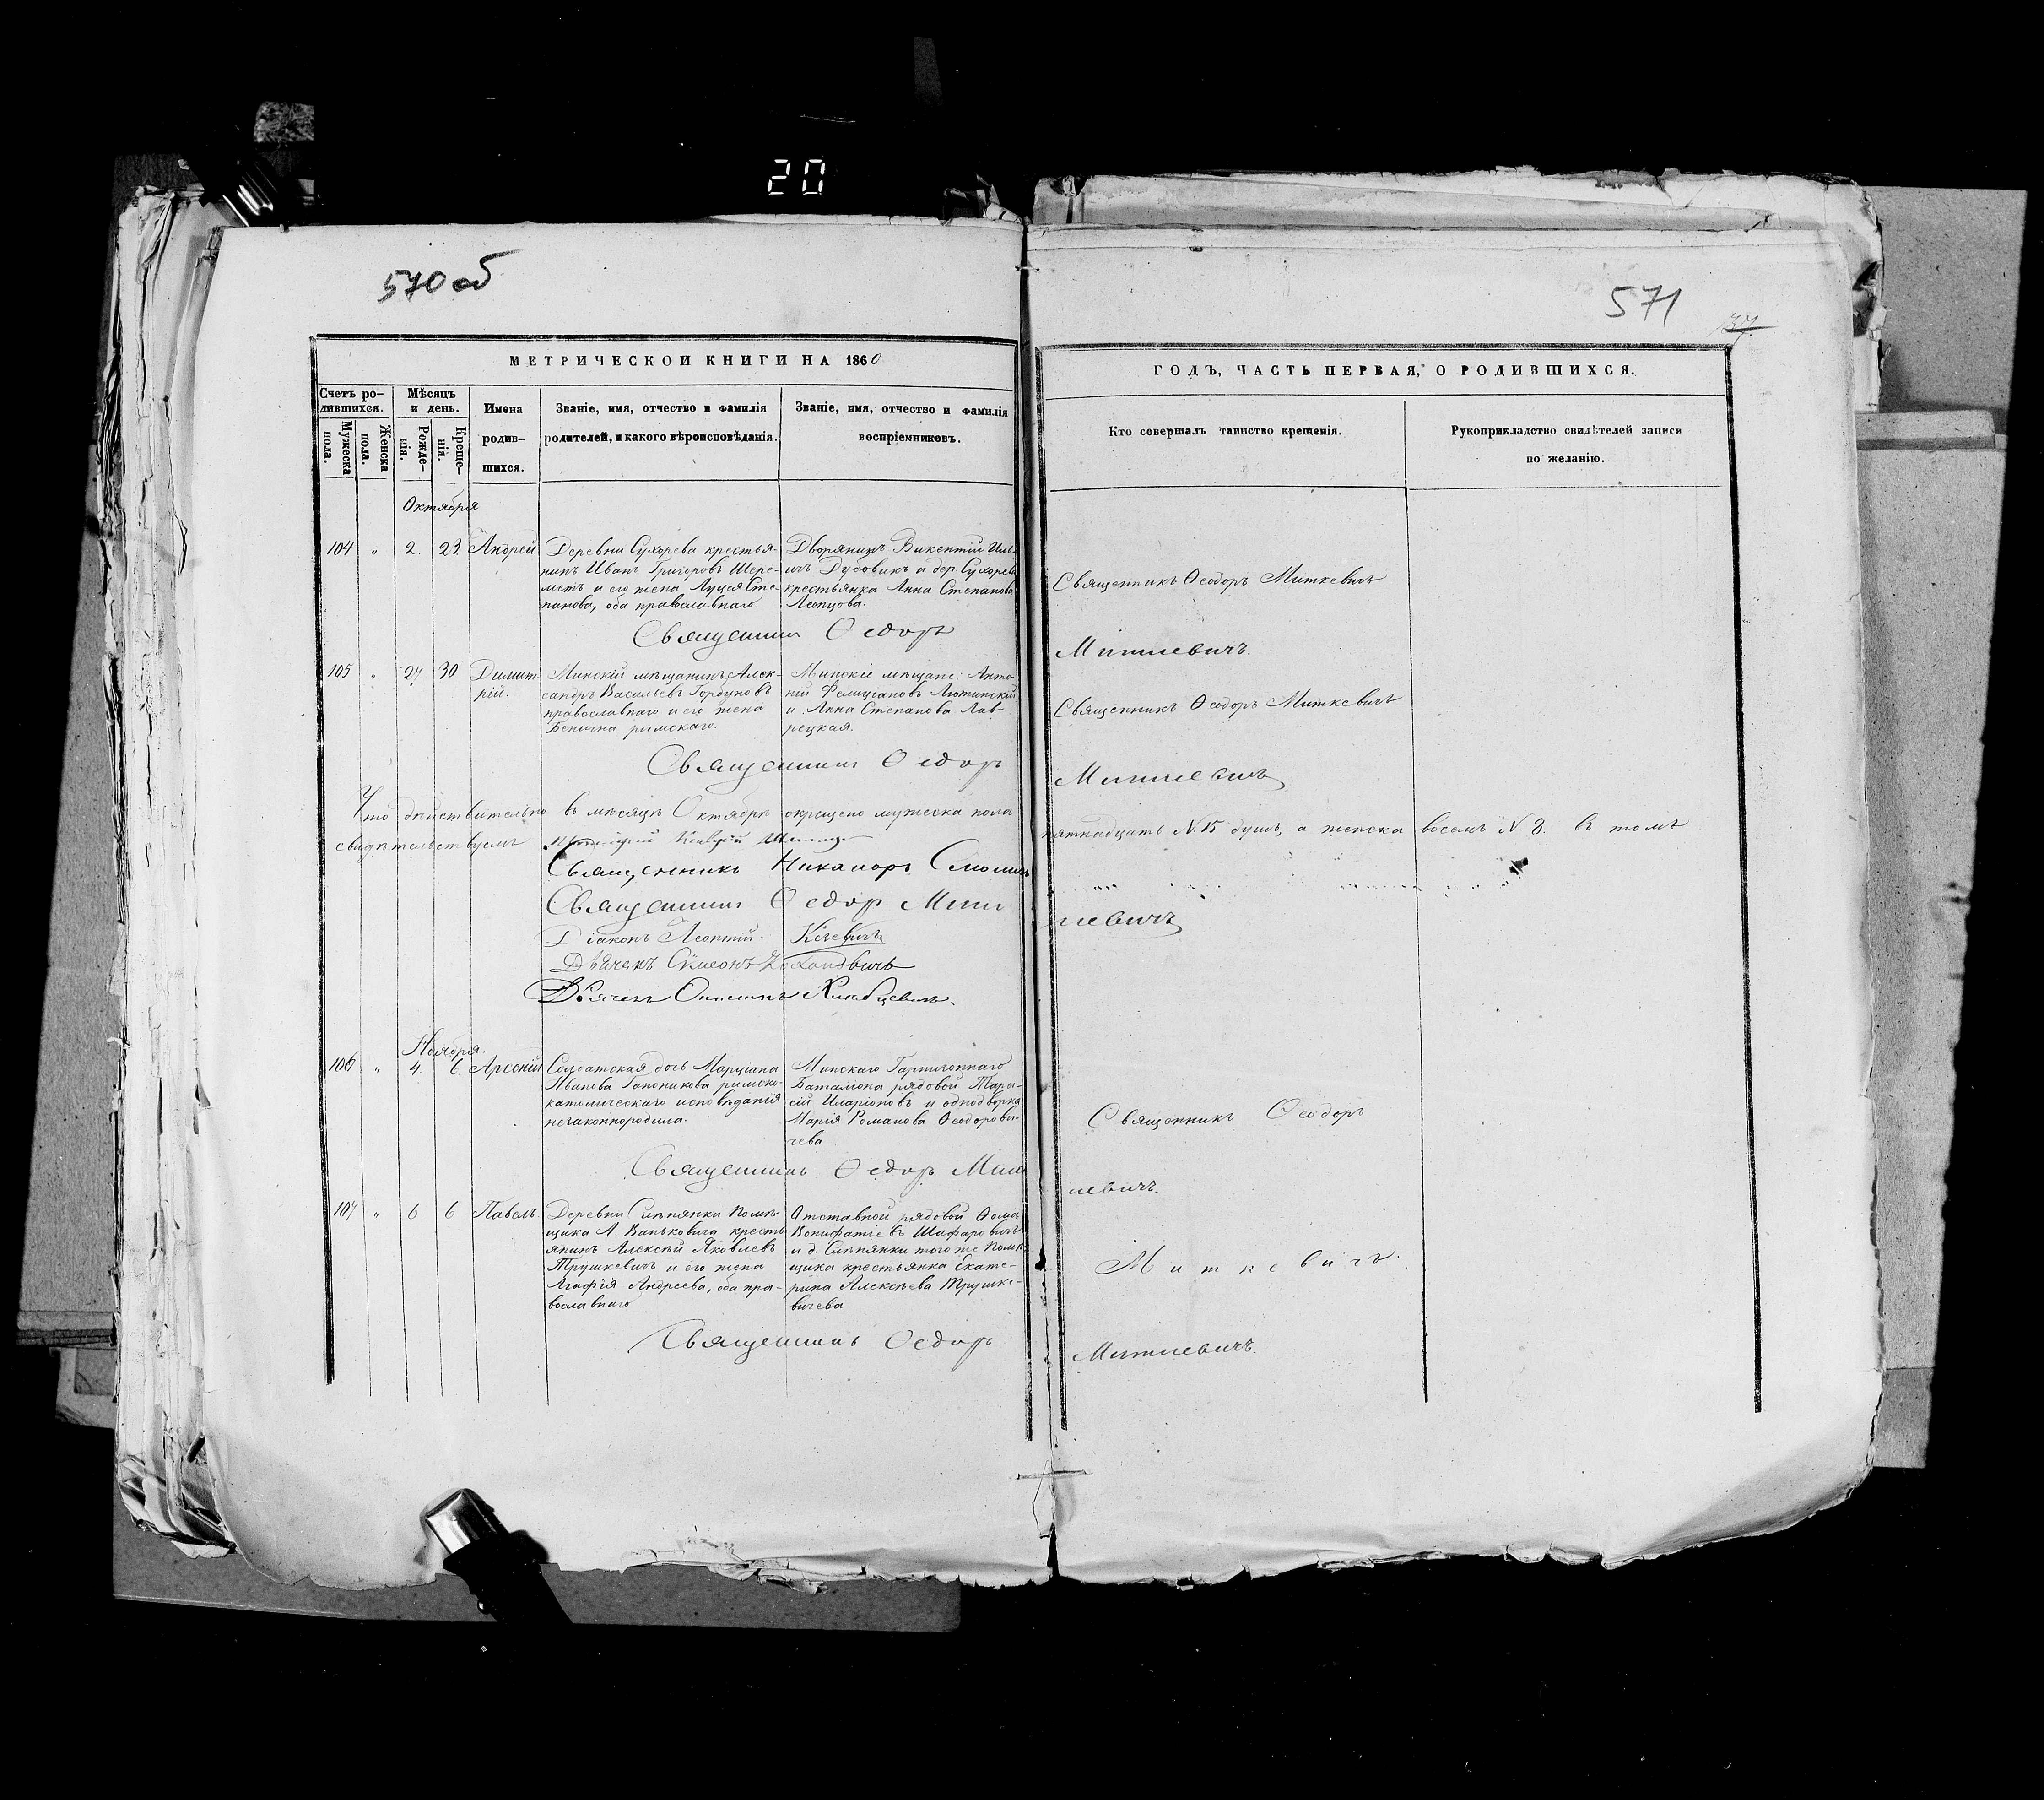 20
570 об
571
МЕТРИЧЕСКОЙ КНИГИ НА 1860
ГОДЪ, ЧАСТЬ ПЕРВАЯ, О РОДИВШИХСЯ.
Счетъ ро-
дившихся.
Мужеска
пола.
Женска
пола.
Мѣсяцъ
и день.
Рожде-
нія.
Креще-
нія.
Имена
родив-
шихся.
Званіе, имя, отчество и фамилія
родителей, и какого вѣроисповѣданія.
Званіе, имя, отчество и фамилія
воспріемниковъ.
Кто совершалъ таинство крещенія.
Рукоприкладство свидѣтелей записи
по желанію.
Октября
104 " 2. 23. Андрей
Деревни Сухорева крестья-
нинъ Иванъ Григоровъ Шере-
метъ и его жена Луцея Сте-
панова, оба православнаго.
Дворянинъ Викентій
Дубовикъ и дер. Сухорева
крестьянка Анна Степанова
Священникъ Ѳеодоръ Миткевичъ
Священникъ Ѳеодоръ
Миткевичъ.
105 " 27 30 Димит-
рій.
Минскій мѣщанинъ Алек-
сандръ Васильевъ Горбуновъ
православнаго и его жена
Бенигна римскаго.
Минскіе мѣщане: Анто-
ній Фелиціановъ Лютинскій
и Анна Степанова Лав-
рецкая.
Священникъ Ѳеодоръ Миткевичъ
Священникъ Ѳеодоръ
Миткевичъ
Что дѣйствительно въ мѣсяцѣ Октябрѣ окрещено мужеска пола
пятнадцать N. 15 душъ, а женска восемь N. 8. въ томъ
свидѣтельствуемъ
Священникъ Никаноръ Смоличъ
Священникъ Ѳеодоръ Мит
кевичъ
Діаконъ Леонтій
Дьячекъ Сѵмеонъ
Дьячекъ
Ноября.
106 " 4. 6 Арсеній
Солдатская дочь Марціана
Иванова Гапоникова римско-
католическаго исповѣданія
незаконнородила.
Минскаго Гарнизоннаго
Баталіона рядовой Тара-
сій Иларіоновъ и однодворка
Марія Романова Ѳеодорови-
чева
Священникъ Ѳеодоръ
Священникъ Ѳеодоръ Мит
кевичъ.
107 " 6 6 Павелъ
Деревни Слѣпянки Помѣ-
щика А. Ваньковича кресть
янинъ Алексѣй Яковлевъ
Трушкевичъ и его жена
Агафія Андреева, оба пра-
вославнаго
Отставной рядовой Ѳома
Вонифатіевъ Шафаровичъ
и д. Слѣпянки того же Помѣ-
щика крестьянка Екате-
рина Алексѣева Трушке-
вичева
Миткевичъ.
Священникъ Ѳеодоръ
Миткевичъ.